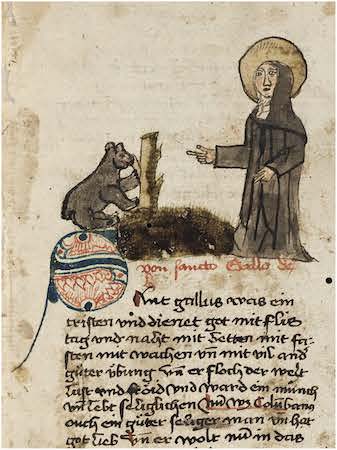 Von sancto Gallo
Sant gallus was ein
cristen vnd dienet got mit flis
tag vnd nacht mit betten mit fa
sten mit wachen vn̄ mit vil and
gůter übung vn̄ er floch der welt
lust vnd fröid vnd ward ein münch
vn̄ lebt seliglichen Nu wz Colūbanus
ouch ein gůter seliger man vn̄ hat
got lieb vn̄ er wolt nu in das